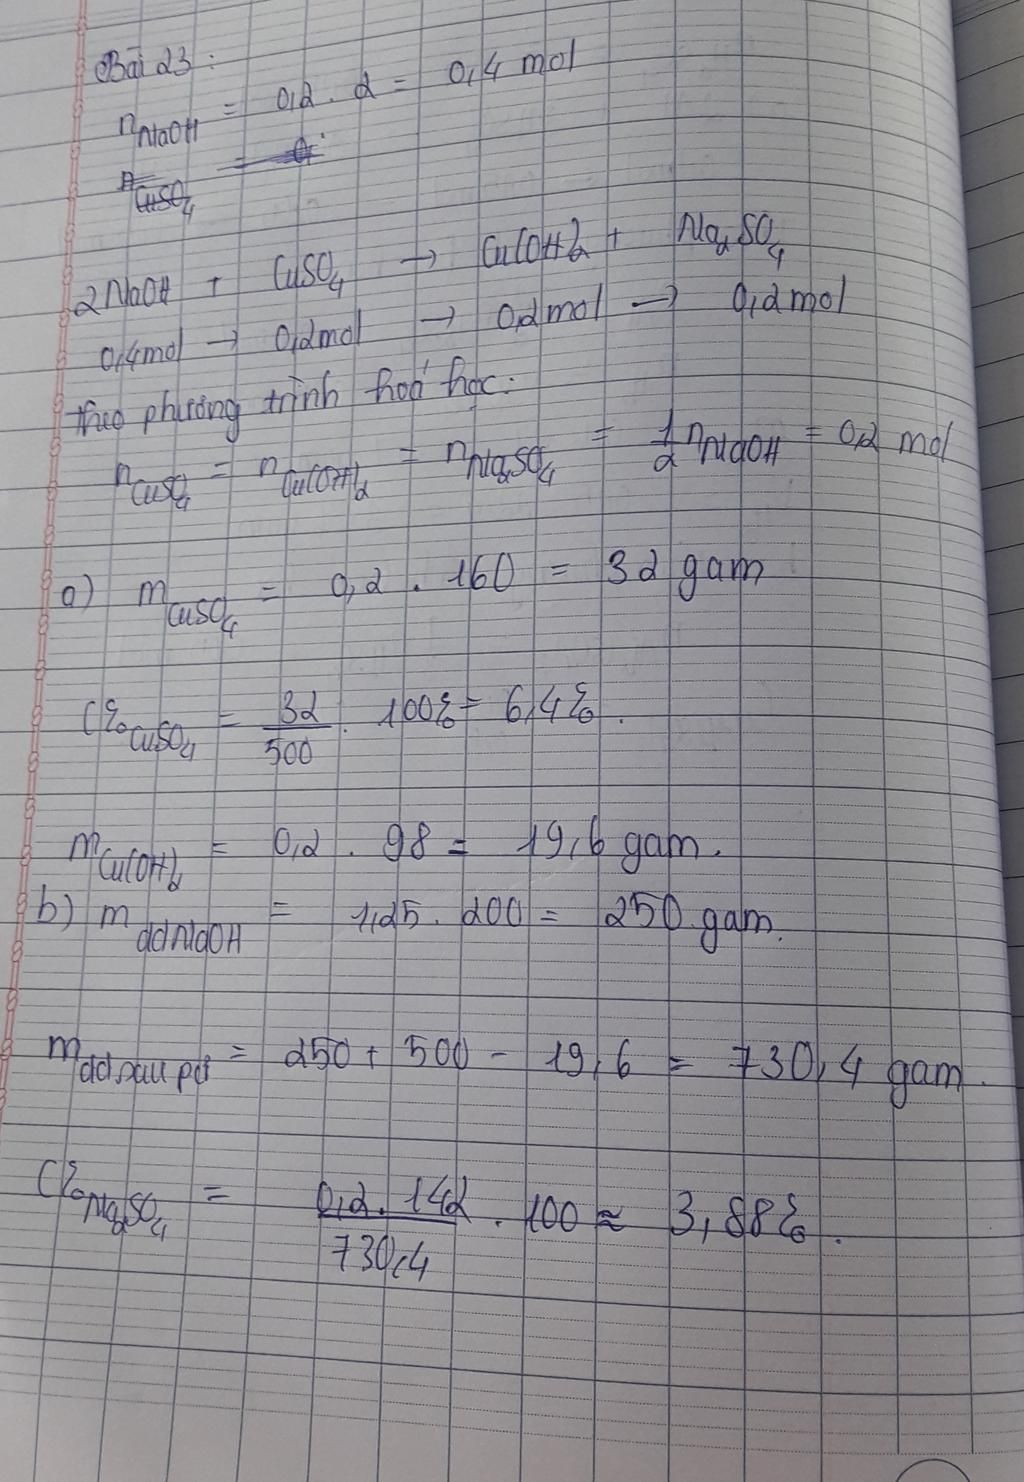 Bài 23 :
n NaOH = 0,2 . 2 = 0,4 mol
n CuSO4 =
2NaOH + CuSO4 → Cu(OH)2 + Na2SO4
0,4mol → 0,2mol → 0,2mol → 0,2mol
theo phương trình hoá học:
n CuSO4 = n Cu(OH)2 = n Na2SO4 = 1/2 n NaOH = 0,2 mol
a) m CuSO4 = 0,2 . 160 = 32 gam
C% CuSO4 = 32/500 . 100% = 6,4%.
m Cu(OH)2 = 0,2 . 98 = 19,6 gam.
b) m ddNaOH = 1,25 . 200 = 250 gam.
m dd sau pứ = 250 + 500 - 19,6 = 730,4 gam.
C% Na2SO4 = 0,2 . 142/730,4 . 100 ≈ 3,88%.